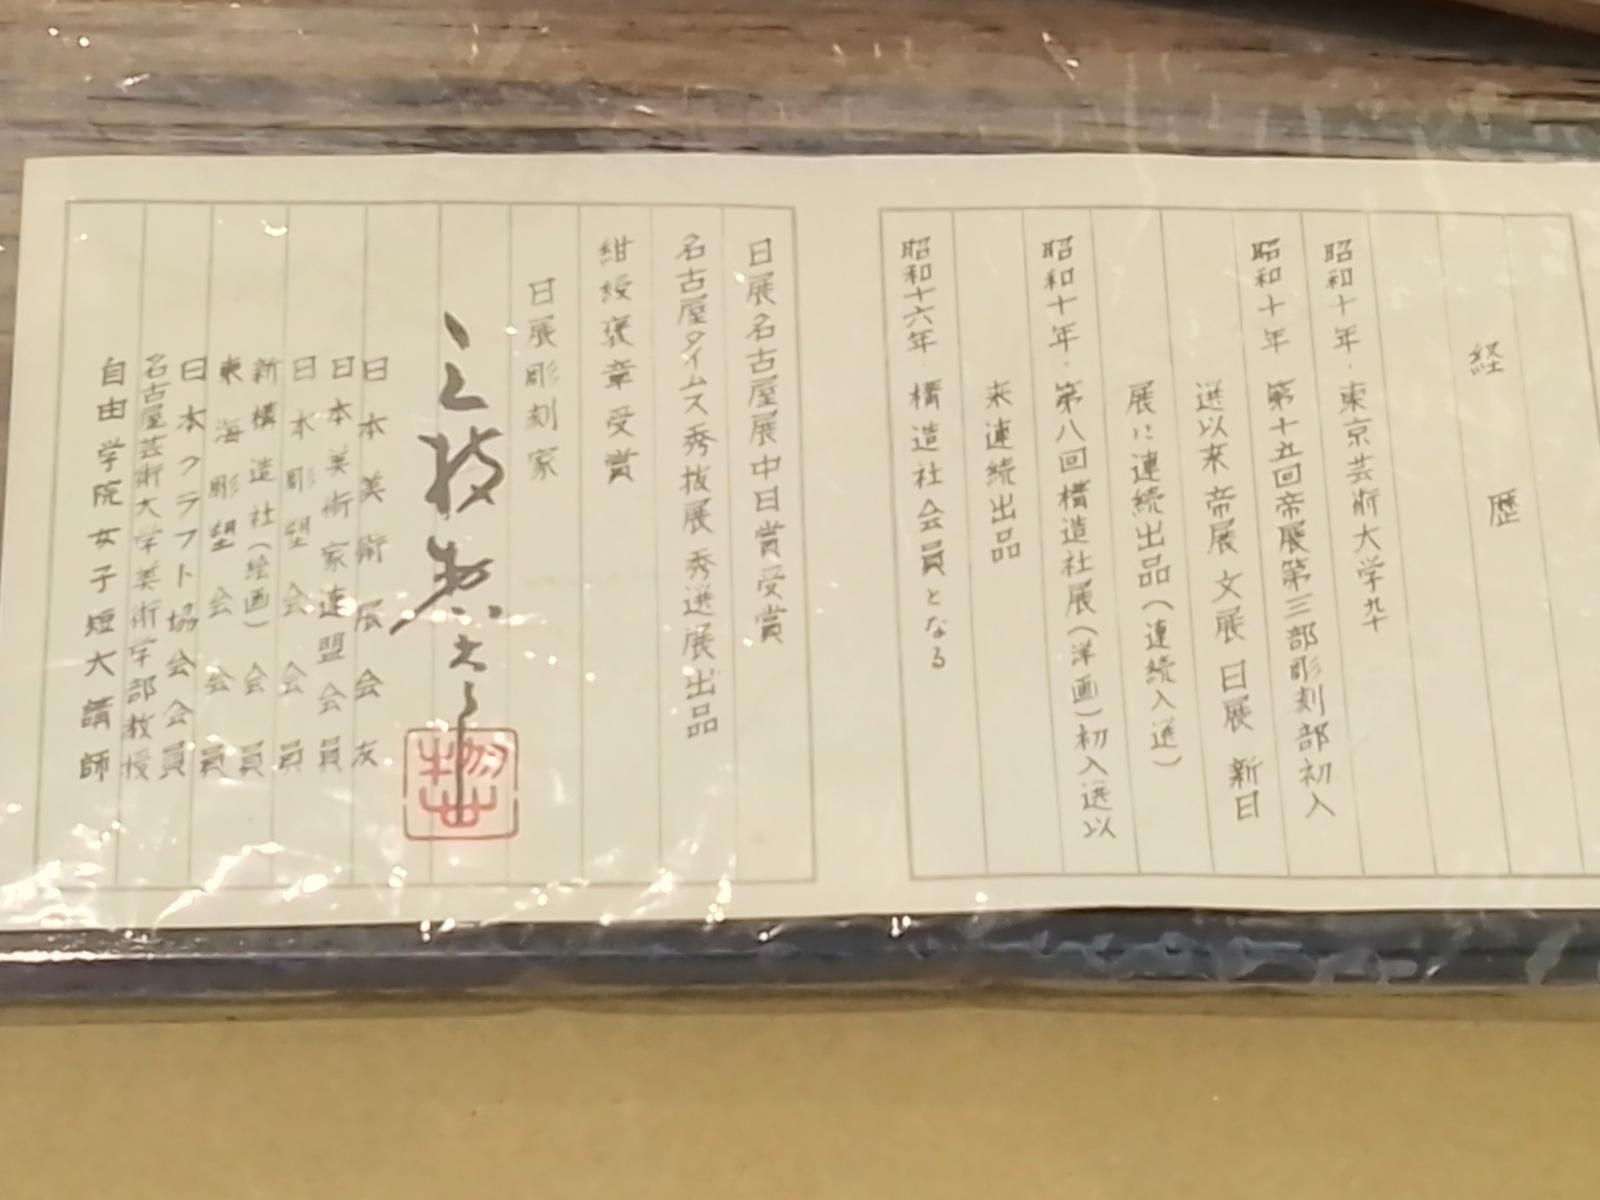 経 歴
昭和十年・東京芸術大学卆
昭和十年 第十五回帝展第三部彫刻部初入
選以来 帝展 文展 日展 新日
展に連続出品(連続入選)
昭和十年・第八回構造社展(洋画)初入選以
来連続出品
昭和十六年・構造社会員となる
日展名古屋展中日賞受賞
名古屋タイムス秀抜展 秀選展出品
紺綬褒章受賞
日展彫刻家
日本美術展会友
日本美術家連盟会員
日本彫塑会会員
新構造社(絵画)会員
東海彫塑会会員
日本クラフト協会会員
名古屋芸術大学美術学部教授
自由学院女子短大講師